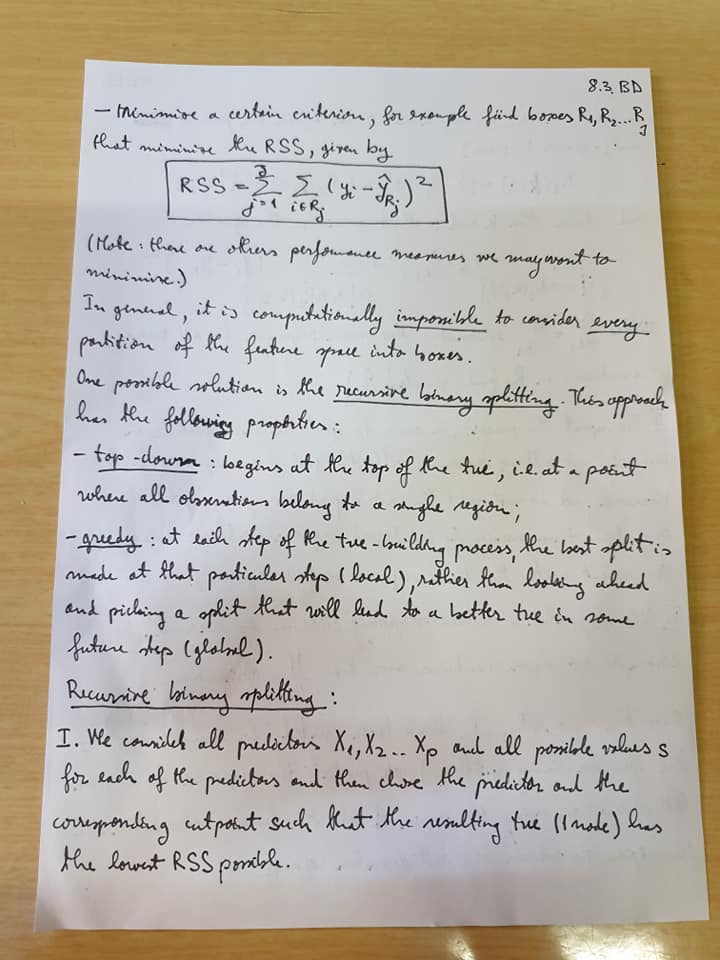 8.3. BD
- Minimise a certain criterion, for example find boxes R₁, R₂...R_J
that minimise the RSS, given by
RSS = ∑_{j=1}^{J} ∑_{i∈R_j} (y_i - ŷ_{R_j})²
(Note: there are others performance measures we may want to
minimise.)
In general, it is computationally impossible to consider every
partition of the feature space into boxes.
One possible solution is the recursive binary splitting. This approach
has the following properties:
- top-down: begins at the top of the tree, i.e. at a point
where all observations belong to a single region;
- greedy: at each step of the tree-building process, the best split is
made at that particular step (local), rather than looking ahead
and picking a split that will lead to a better tree in some
future steps (global).
Recursive binary splitting:
I. We consider all predictors X₁, X₂.. Xp and all possible values s
for each of the predictors and then chose the predictor and the
corresponding cutpoint such that the resulting tree (1 node) has
the lowest RSS possible.